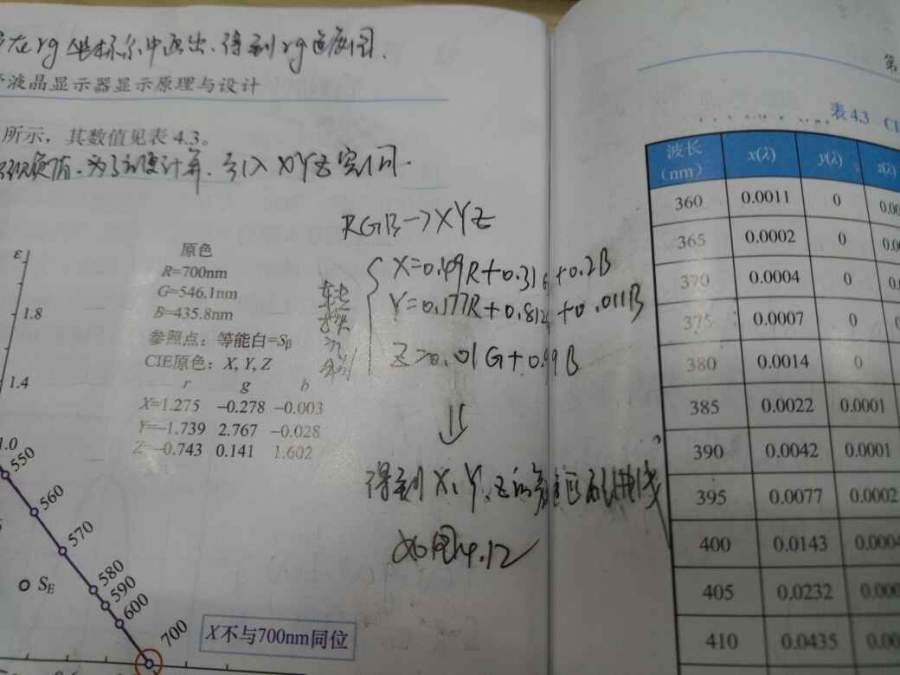 在rg坐标系中画出,得到rg色度图.
液晶显示器显示原理与设计
所示,其数值见表 4.3。
为了方便计算.引入XYZ空间.
RGB→XYZ
X=0.49R+0.31G+0.2B
Y=0.177R+0.812G+0.011B
Z=0.01G+0.99B
⇓
得到 X、Y、Z的
如图4.12
原色
R=700nm
G=546.1nm
B=435.8nm
参照点:等能白=S
CIE原色:X, Y, Z
r g b
X=1.275 −0.278 −0.003
Y=−1.739 2.767 −0.028
Z=−0.743 0.141 1.602
g
1.8
1.4
1.0
550
560
570
580
590
600
700
S_E
X不与700nm同位
第
表 4.3 CI
波长(nm) x(λ) y(λ) z(λ)
360 0.0011 0 0.00
365 0.0002 0 0.0
370 0.0004 0 0.
375 0.0007 0 0
380 0.0014 0
385 0.0022 0.0001
390 0.0042 0.0001
395 0.0077 0.0002
400 0.0143 0.0004
405 0.0232 0.000
410 0.0435 0.00